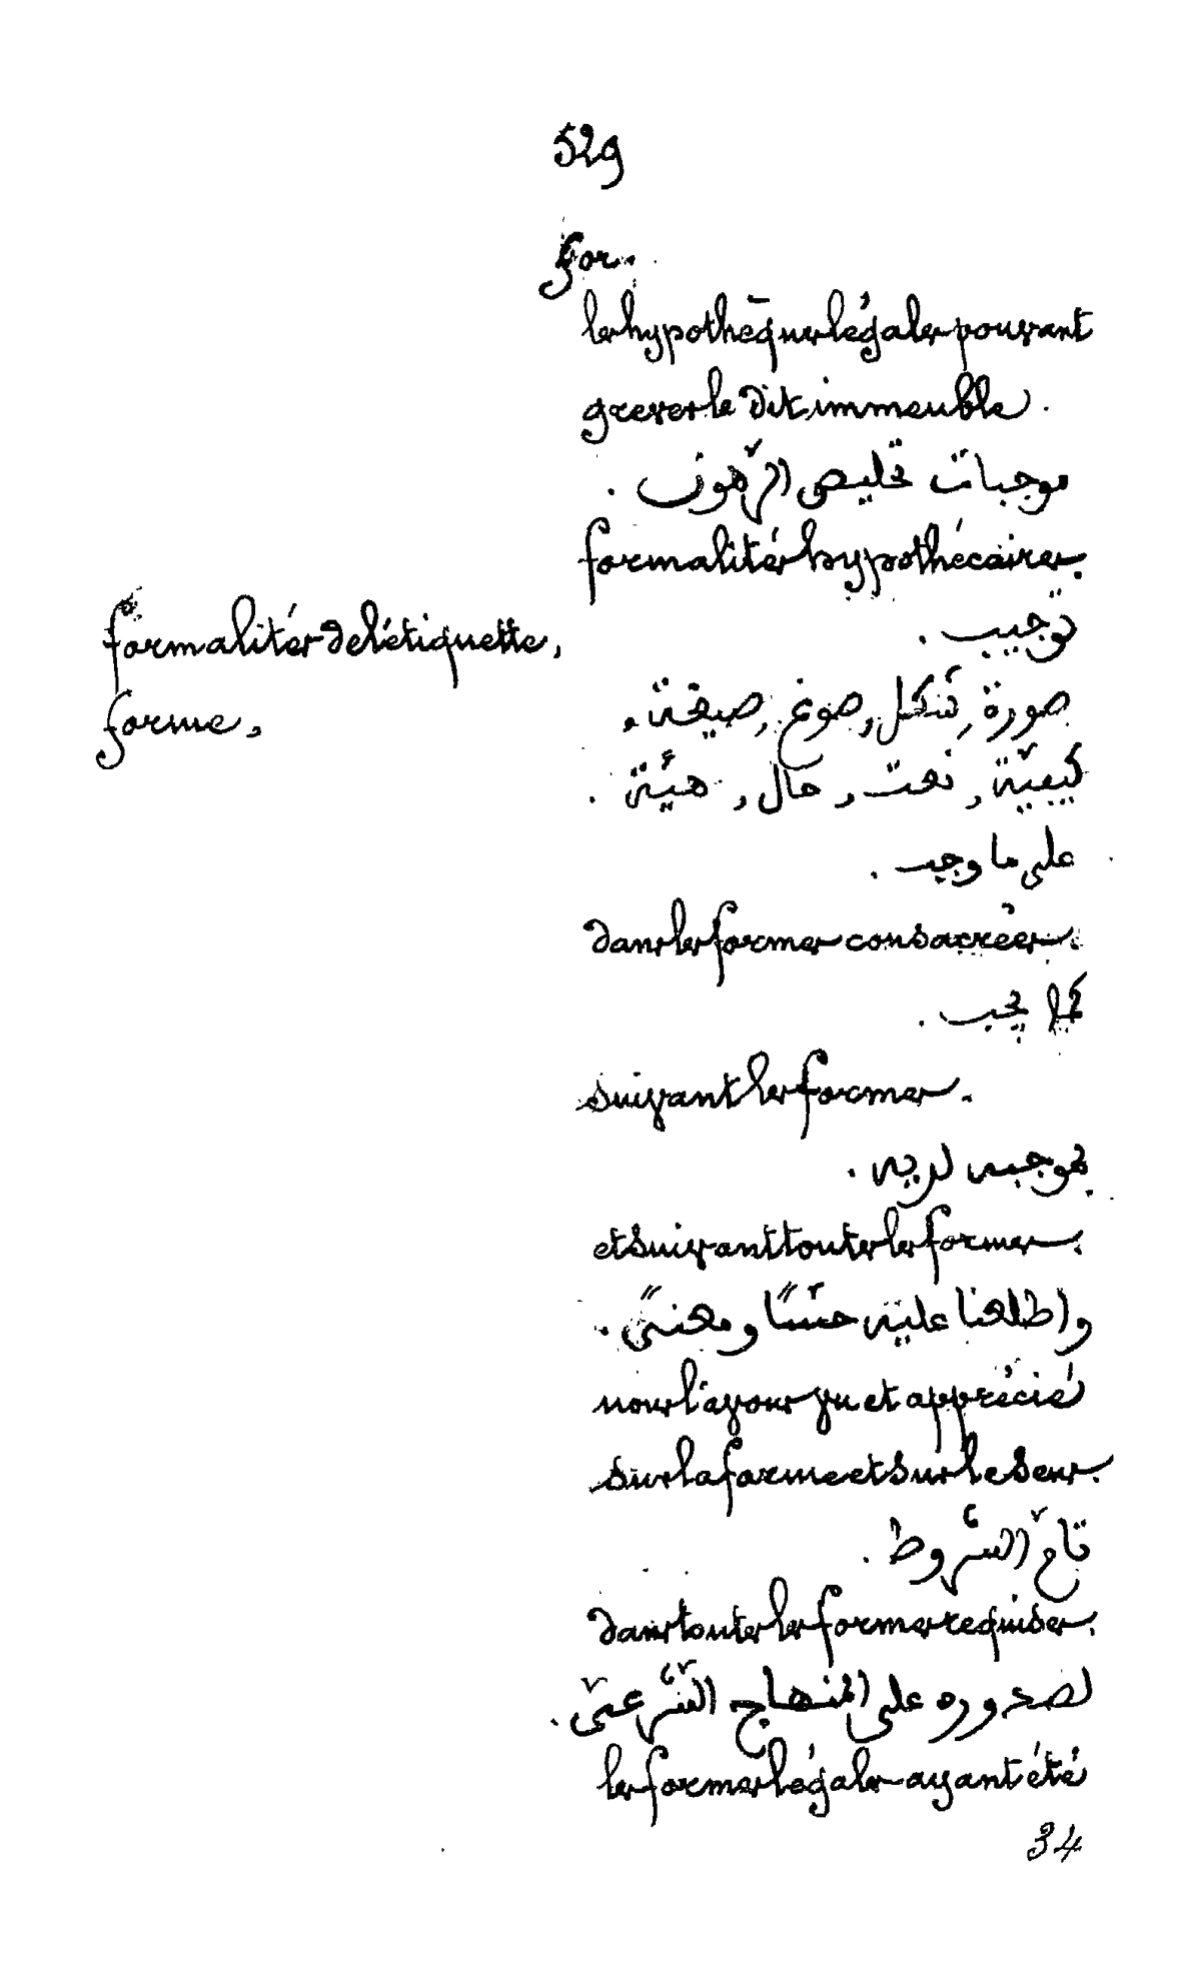 529
for.
les hypothèques légales pouvant
grever le dit immeuble.
موجبات تخليص الرّهون.
formalités hypothécaires.
formalités de l'étiquette,
توجيب.
forme,
صورة, شكل, صوغ, صيغة,
كيفيّة, نعت, حال, هيئة.
على ما وجب.
dans les formes consacrées.
كما يجب.
suivant les formes.
بموجبه لديه.
et suivant toutes les formes.
واطلعنا عليه حسّاً ومعنىً.
nous l'avons vu et apprécié
sur la forme et sur le sens.
تامّ الشّروط.
dans toutes les formes requises.
لصدوره على المنهاج الشّرعىّ.
les formes légales ayant été
34